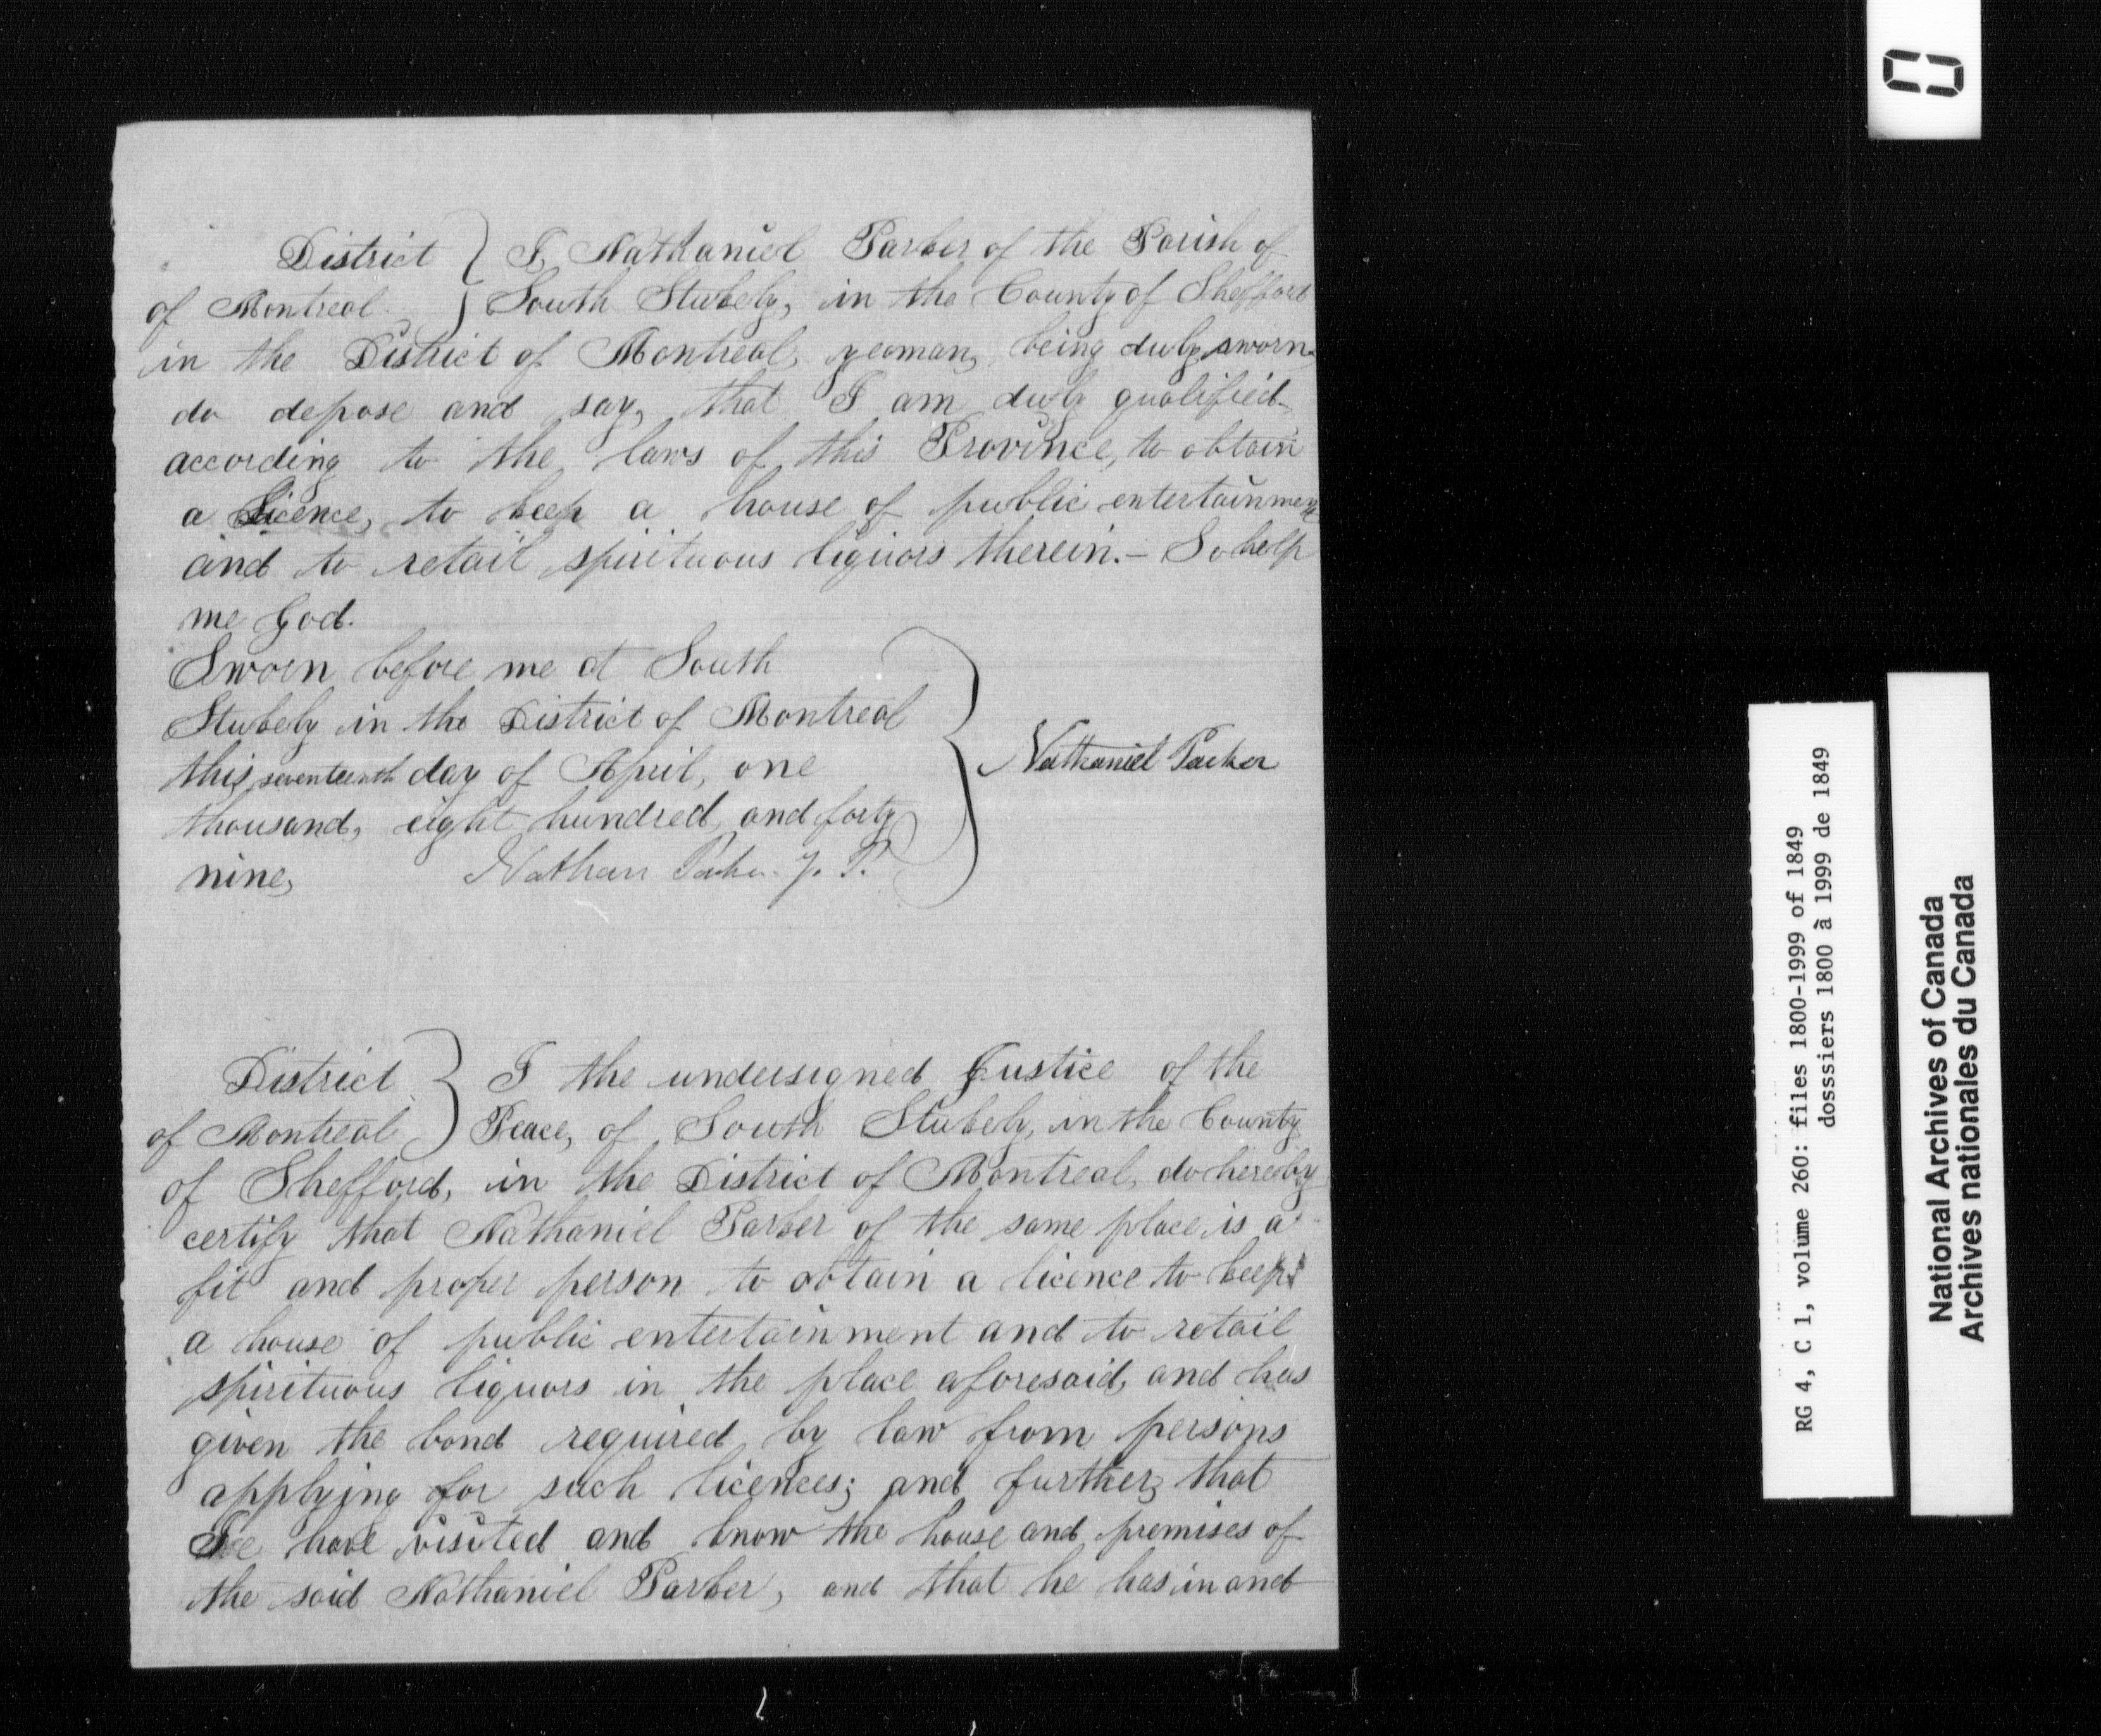 District } I, Nathaniel Parker of the Parish of
of Montreal. } South Stukely, in the County of Shefford
in the District of Montreal, yeoman, being duly sworn
do depose and say, that I am duly qualified
according to the laws of this Province, to obtain
a Licence, to keep a house of public entertainment
and to retail spirituous liquors therein.– So help
me God.
Sworn before me at South
Stukely in the District of Montreal
this seventeenth day of April, one
thousand, eight hundred and forty
nine,
Nathan Parker J. P.
Nathaniel Parker
District } I the undersigned Justice of the
of Montreal } Peace, of South Stukely, in the County
of Shefford, in the District of Montreal, do hereby
certify that Nathaniel Parker of the same place is a
fit and proper person to obtain a licence to keep
a house of public entertainment and to retail
spirituous liquors in the place aforesaid, and has
given the bond required by law from persons
applying for such licences; and further, that
have visited and know the house and premises of
the said Nathaniel Parker, and that he has in and
RG 4, C 1, volume 260: files 1800-1999 of 1849
dosssiers 1800 à 1999 de 1849
National Archives of Canada
Archives nationales du Canada